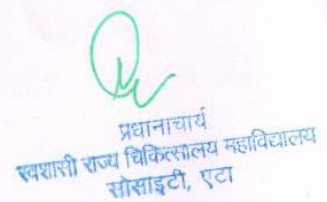 प्रधानाचार्य
स्वशासी राज्य चिकित्सालय महाविद्यालय
सोसाइटी, एटा